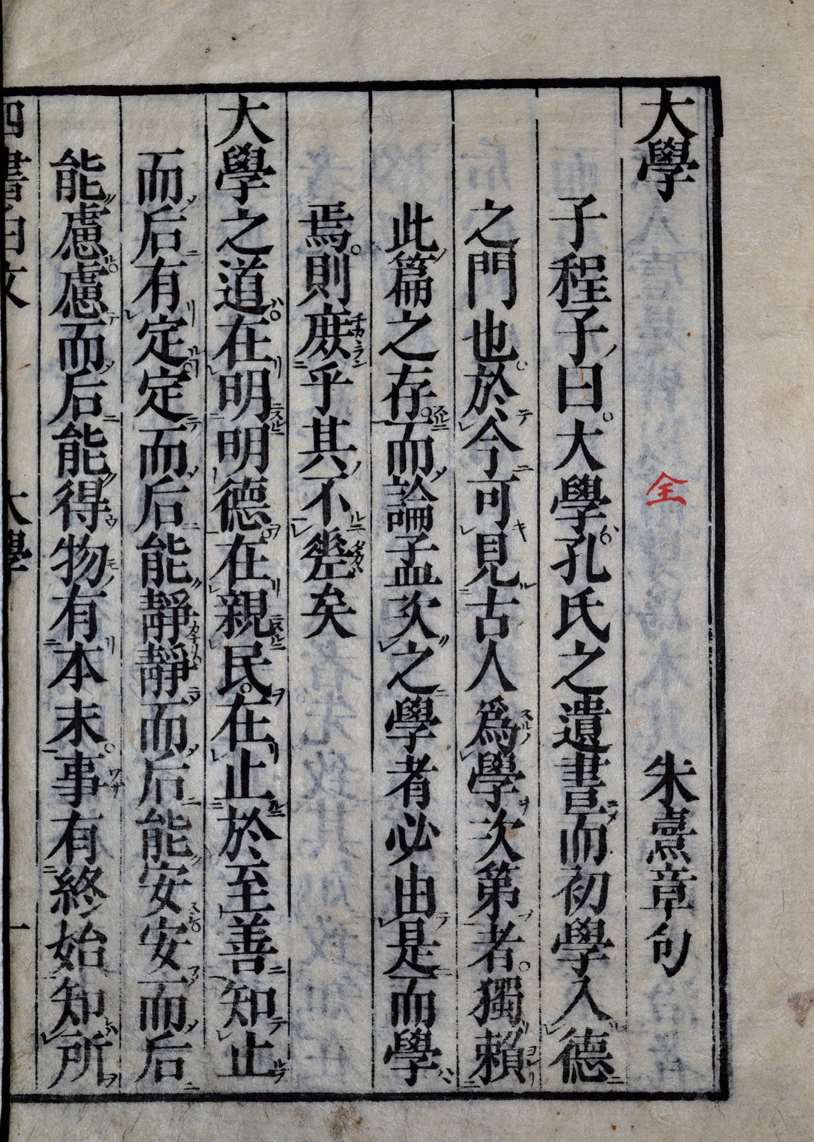 大學 全 朱熹章句
子程子曰大學孔氏之遺書而初學入德
之門也於今可見古人爲學次第者獨賴
此篇之存而論孟次之學者必由是而學
焉則庻乎其不差矣
大學之道在明明德在親民在止於至善知止
而后有定定而后能靜靜而后能安安而后
能慮慮而后能得物有本末事有終始知所
四書白文 大學 一